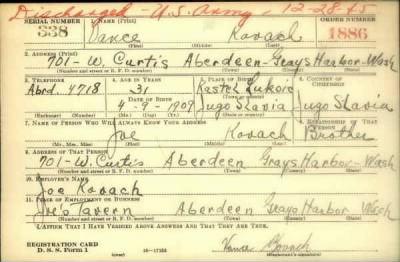 Discharged - U.S. Army - 12-28-45
SERIAL NUMBER 1. NAME (Print) ORDER NUMBER
338 Vance Kovach 1886
(First) (Middle) (Last)
2. ADDRESS (Print)
701- W. Curtis Aberdeen - Grays Harbor - Wash
(Number and street or R. F. D. number) (Town) (County) (State)
3. TELEPHONE 4. AGE IN YEARS 5. PLACE OF BIRTH 6. COUNTRY OF CITIZENSHIP
Abrd. 4718 31 Kastel Lukore
DATE OF BIRTH (Town or county)
4-9-1909 Jugo Slavia Jugo Slavia
(Exchange) (Number) (Mo.) (Day) (Yr.) (State or country)
7. NAME OF PERSON WHO WILL ALWAYS KNOW YOUR ADDRESS 8. RELATIONSHIP OF THAT PERSON
Joe Kovach Brother
(Mr., Mrs., Miss) (First) (Middle) (Last)
9. ADDRESS OF THAT PERSON
701-W. Curtis Aberdeen Grays Harbor - Wash
(Number and street or R. F. D. number) (Town) (County) (State)
10. EMPLOYER'S NAME
Joe Kovach
11. PLACE OF EMPLOYMENT OR BUSINESS
Joe's Tavern Aberdeen Grays Harbor Wash
(Number and street or R. F. D. number) (Town) (County) (State)
I AFFIRM THAT I HAVE VERIFIED ABOVE ANSWERS AND THAT THEY ARE TRUE.
REGISTRATION CARD
D. S. S. Form 1 16-17105 Vance Kovach